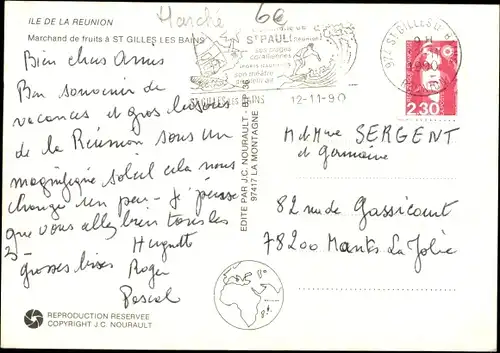 ILE DE LA REUNION
Marchand de fruits à ST GILLES LES BAINS
Marché
6€
Bien chers Amis
Bon souvenir de
vacances et gros bisous
de la Réunion sous un
magnifique soleil cela nous
change un peu - je pense
que vous allez bien tous les
3 -
grosses bises
Huguette
Roger
Pascal
REPRODUCTION RESERVEE
COPYRIGHT J.C. NOURAULT
EDITE PAR J.C. NOURAULT - BP 36
97417 LA MONTAGNE
ST PAUL
ses plages
coralliennes
son théâtre
de plein air
ST GILLES LES BAINS
12-11-90
974 ST GILLES
1990
REUNION
2,30
M et Mme SERGENT
et Germaine
82 rue de Gassicourt
78200 Mantes La Jolie